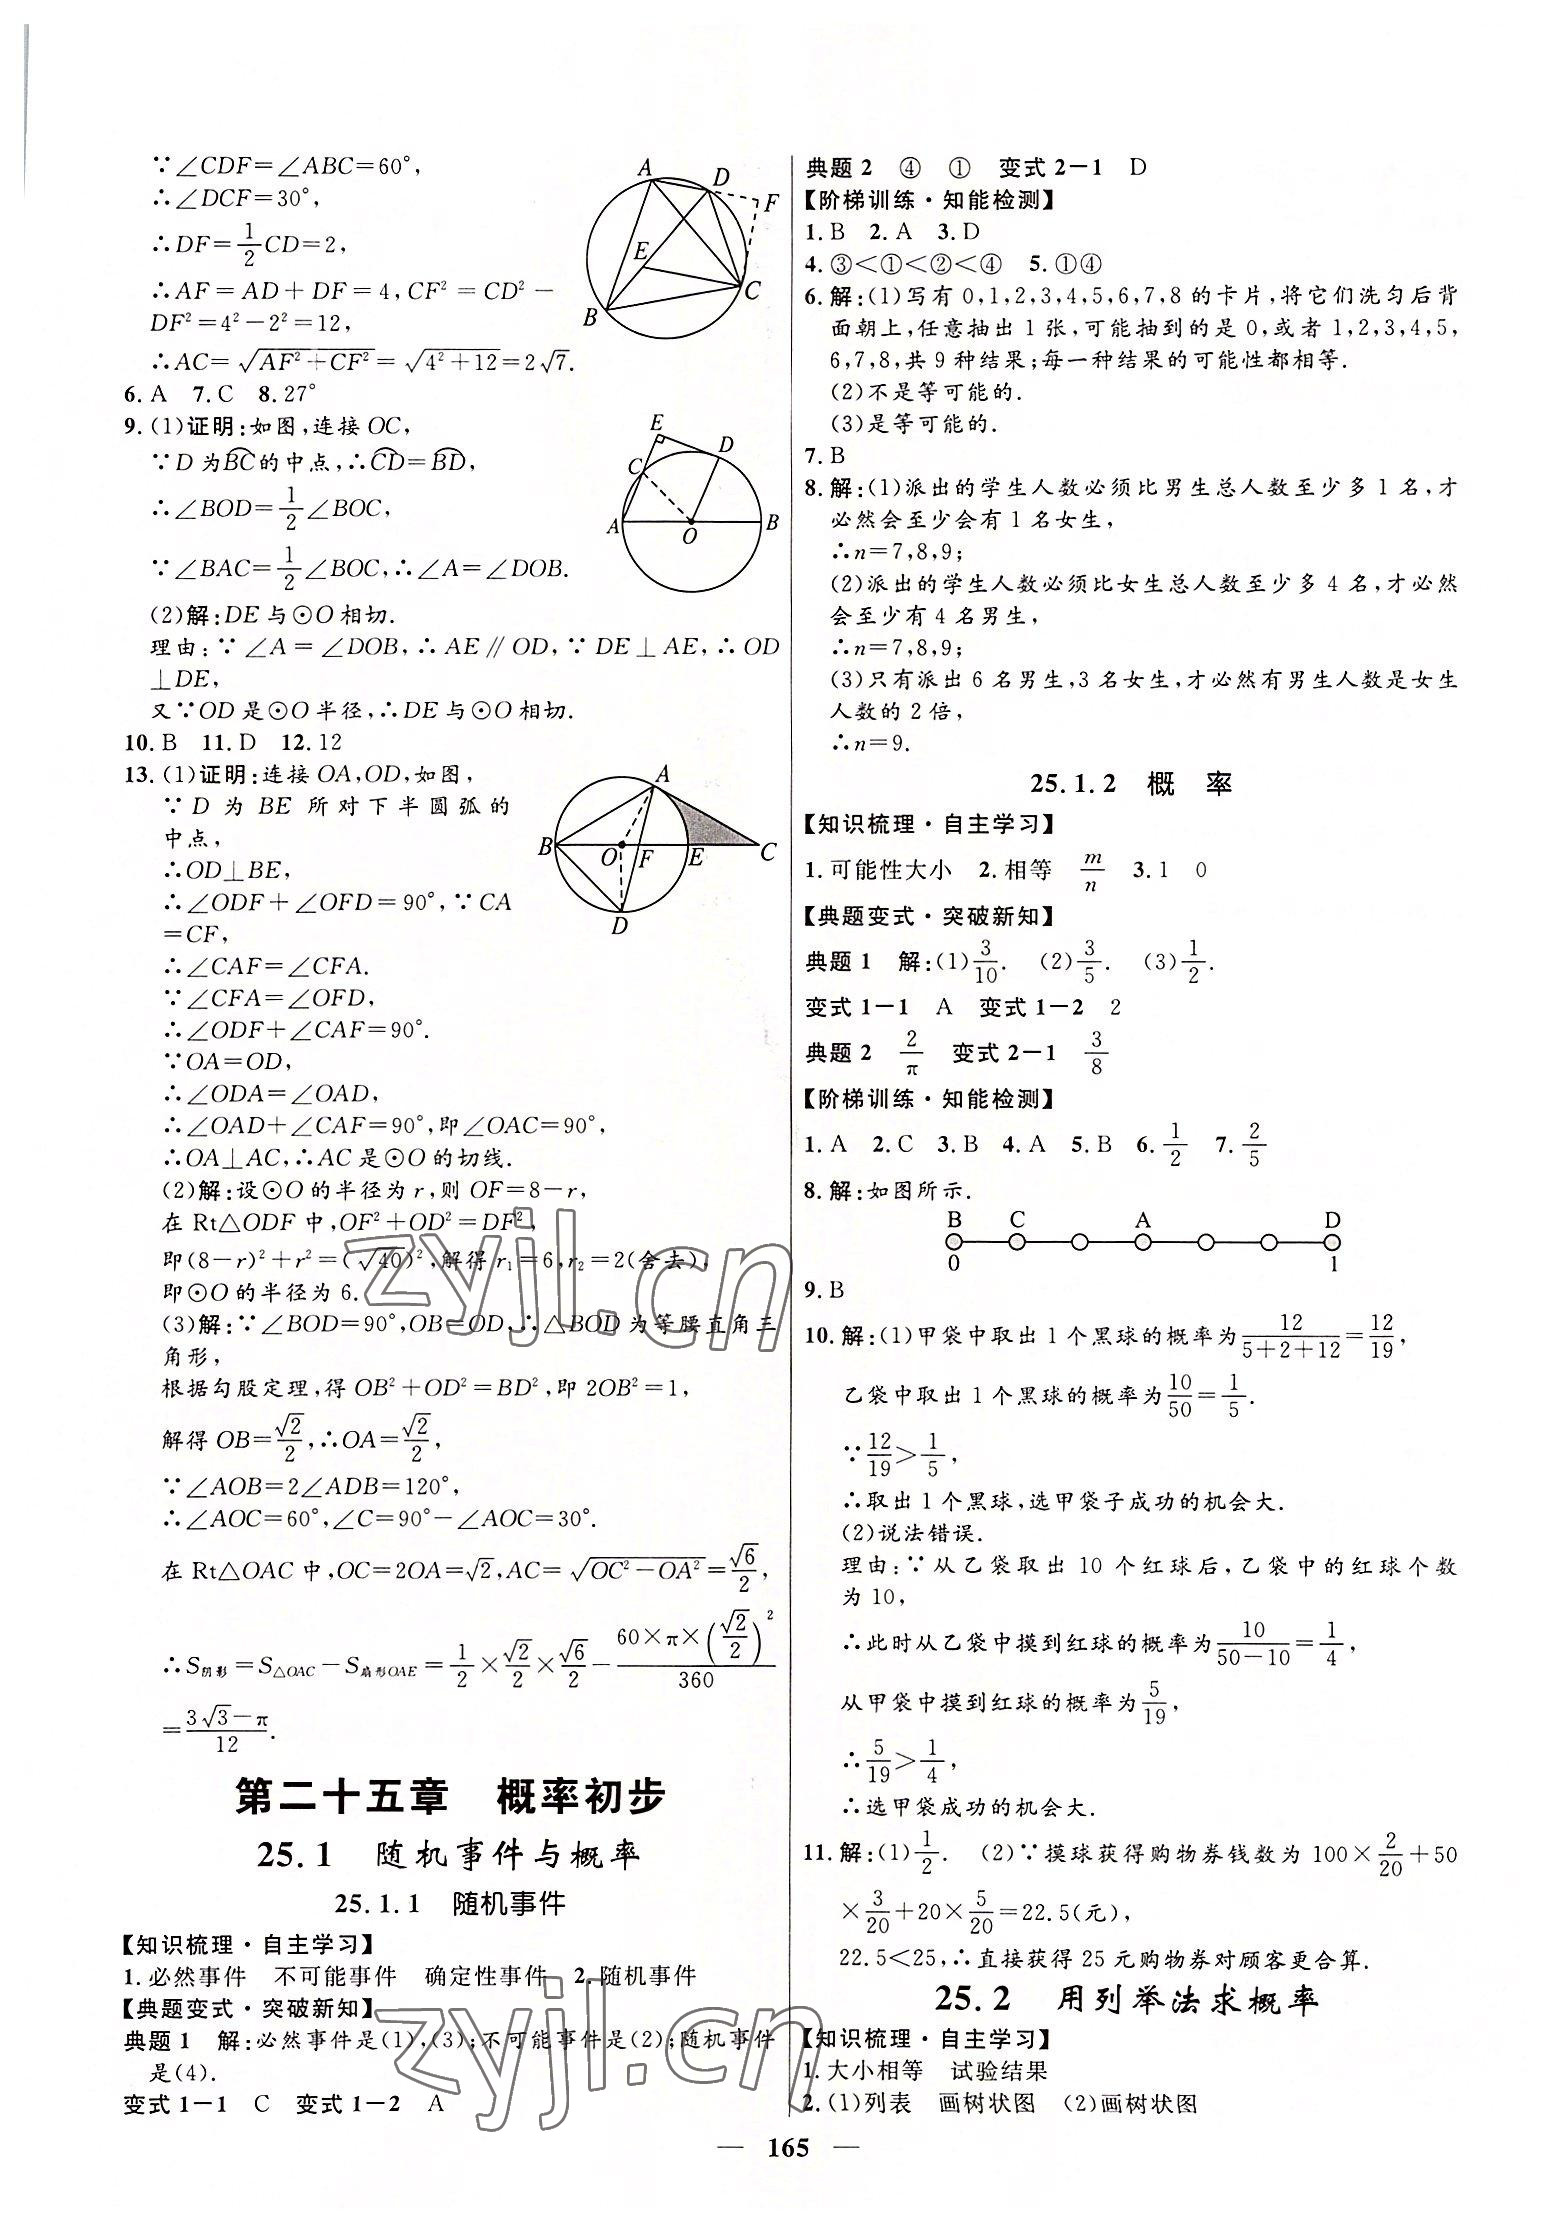 ∵∠CDF=∠ABC=60°,
∴∠DCF=30°,
∴DF=1/2CD=2,
∴AF=AD+DF=4,CF²=CD²-
DF²=4²-2²=12,
∴AC=√(AF²+CF²)=√(4²+12)=2√7.
A
D
F
E
C
B
6.A 7.C 8.27°
9.(1)证明:如图,连接OC,
∵D为BC⌒的中点,∴CD⌒=BD⌒,
∴∠BOD=1/2∠BOC,
∵∠BAC=1/2∠BOC,∴∠A=∠DOB.
E
D
C
A
O
B
(2)解:DE与⊙O相切.
理由:∵∠A=∠DOB,∴AE∥OD,∵DE⊥AE,∴OD
⊥DE,
又∵OD是⊙O半径,∴DE与⊙O相切.
10.B 11.D 12.12
13.(1)证明:连接OA,OD,如图,
∵D为BE所对下半圆弧的
中点,
∴OD⊥BE,
∴∠ODF+∠OFD=90°,∵CA
=CF,
A
B O F E C
D
∴∠CAF=∠CFA.
∵∠CFA=∠OFD,
∴∠ODF+∠CAF=90°.
∵OA=OD,
∴∠ODA=∠OAD,
∴∠OAD+∠CAF=90°,即∠OAC=90°,
∴OA⊥AC,∴AC是⊙O的切线.
(2)解:设⊙O的半径为r,则OF=8-r,
在Rt△ODF中,OF²+OD²=DF²,
即(8-r)²+r²=(√40)²,解得r₁=6,r₂=2(舍去),
即⊙O的半径为6.
(3)解:∵∠BOD=90°,OB=OD,∴△BOD为等腰直角三
角形,
根据勾股定理,得OB²+OD²=BD²,即2OB²=1,
解得OB=√2/2,∴OA=√2/2,
∵∠AOB=2∠ADB=120°,
∴∠AOC=60°,∠C=90°-∠AOC=30°.
在Rt△OAC中,OC=2OA=√2,AC=√(OC²-OA²)=√6/2,
∴S阴影=S△OAC-S扇形OAE=1/2×√2/2×√6/2-(60×π×(√2/2)²)/360
=(3√3-π)/12.
第二十五章 概率初步
25.1 随机事件与概率
25.1.1 随机事件
【知识梳理·自主学习】
1.必然事件 不可能事件 确定性事件 2.随机事件
【典题变式·突破新知】
典题1 解:必然事件是(1),(3);不可能事件是(2);随机事件
是(4).
变式1-1 C 变式1-2 A
典题2 ④ ① 变式2-1 D
【阶梯训练·知能检测】
1.B 2.A 3.D
4.③<①<②<④ 5.①④
6.解:(1)写有0,1,2,3,4,5,6,7,8的卡片,将它们洗匀后背
面朝上,任意抽出1张,可能抽到的是0,或者1,2,3,4,5,
6,7,8,共9种结果;每一种结果的可能性都相等.
(2)不是等可能的.
(3)是等可能的.
7.B
8.解:(1)派出的学生人数必须比男生总人数至少多1名,才
必然会至少会有1名女生,
∴n=7,8,9;
(2)派出的学生人数必须比女生总人数至少多4名,才必然
会至少有4名男生,
∴n=7,8,9;
(3)只有派出6名男生,3名女生,才必然有男生人数是女生
人数的2倍,
∴n=9.
25.1.2 概 率
【知识梳理·自主学习】
1.可能性大小 2.相等 m/n 3.1 0
【典题变式·突破新知】
典题1 解:(1)3/10. (2)3/5. (3)1/2.
变式1-1 A 变式1-2 2
典题2 2/π 变式2-1 3/8
【阶梯训练·知能检测】
1.A 2.C 3.B 4.A 5.B 6.1/2 7.2/5
8.解:如图所示.
B C A D
0 1
9.B
10.解:(1)甲袋中取出1个黑球的概率为12/(5+2+12)=12/19,
乙袋中取出1个黑球的概率为10/50=1/5.
∵12/19>1/5,
∴取出1个黑球,选甲袋子成功的机会大.
(2)说法错误.
理由:∵从乙袋取出10个红球后,乙袋中的红球个数
为10,
∴此时从乙袋中摸到红球的概率为10/(50-10)=1/4,
从甲袋中摸到红球的概率为5/19,
∴5/19>1/4,
∴选甲袋成功的机会大.
11.解:(1)1/2. (2)∵摸球获得购物券钱数为100×2/20+50
×3/20+20×5/20=22.5(元),
22.5<25,∴直接获得25元购物券对顾客更合算.
25.2 用列举法求概率
【知识梳理·自主学习】
1.大小相等 试验结果
2.(1)列表 画树状图 (2)画树状图
— 165 —
zyjl.cn
zyjl.cn